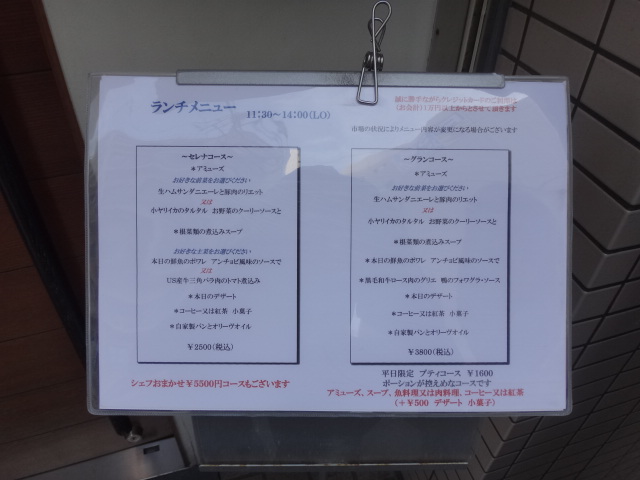 ランチメニュー
11:30～14:00(LO)
誠に勝手ながらクレジットカードのご利用は
(お会計)1万円以上からとさせて頂きます
市場の状況によりメニュー内容が変更になる場合がございます
～セレナコース～
＊アミューズ
お好きな前菜をお選びください
生ハムサンダニエーレと豚肉のリエット
又は
小ヤリイカのタルタル お野菜のクーリーソースと
＊根菜類の煮込みスープ
お好きな主菜をお選びください
本日の鮮魚のポワレ アンチョビ風味のソースで
又は
US産牛三角バラ肉のトマト煮込み
＊本日のデザート
＊コーヒー又は紅茶 小菓子
＊自家製パンとオリーヴオイル
￥2500(税込)
シェフおまかせ￥5500円コースもございます
～グランコース～
＊アミューズ
お好きな前菜をお選びください
生ハムサンダニエーレと豚肉のリエット
又は
小ヤリイカのタルタル お野菜のクーリーソースと
＊根菜類の煮込みスープ
＊本日の鮮魚のポワレ アンチョビ風味のソースで
＊黒毛和牛ロース肉のグリエ 鴨のフォワグラ・ソース
＊本日のデザート
＊コーヒー又は紅茶 小菓子
＊自家製パンとオリーヴオイル
￥3800(税込)
平日限定 プティコース ￥1600
ポーションが控えめなコースです
アミューズ、スープ、魚料理又は肉料理、コーヒー又は紅茶
(＋￥500 デザート 小菓子)